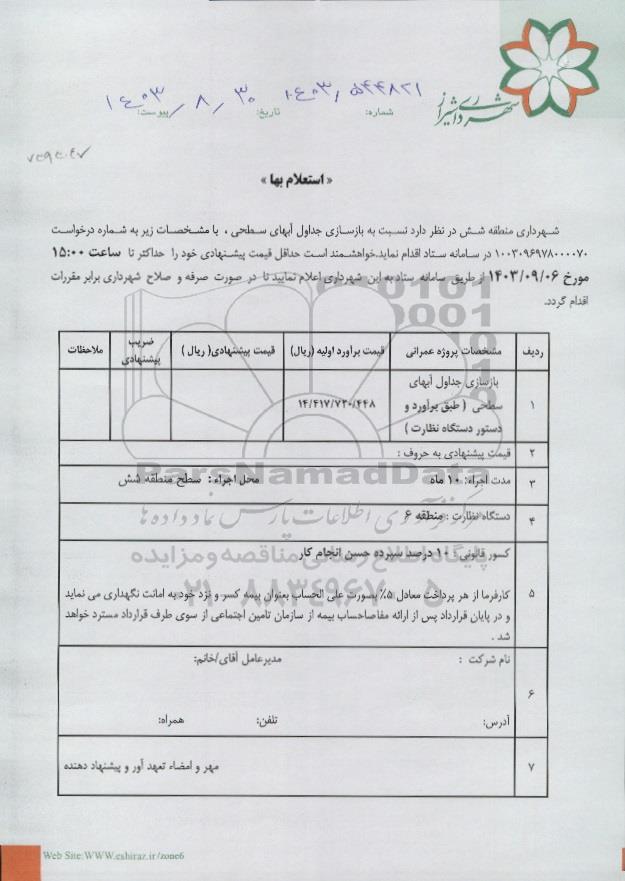 شهرداری شیراز
شماره: ۱۴۰۳/۵۴۴۸۲۱
تاریخ: ۱۴۰۳/۸/۳۰
پیوست:
« استعلام بها »
شهرداری منطقه شش در نظر دارد نسبت به بازسازی جداول آبهای سطحی ، با مشخصات زیر به شماره درخواست
۱۰۰۳۰۹۶۹۷۸۰۰۰۰۷۰ در سامانه ستاد اقدام نماید.خواهشمند است حداقل قیمت پیشنهادی خود را حداکثر تا ساعت ۱۵:۰۰
مورخ ۱۴۰۳/۰۹/۰۶ از طریق سامانه ستاد به این شهرداری اعلام نمایید تا در صورت صرفه و صلاح شهرداری برابر مقررات
اقدام گردد.
ردیف مشخصات پروژه عمرانی قیمت برآورد اولیه (ریال) قیمت پیشنهادی( ریال ) ضریب پیشنهادی ملاحظات
۱ بازسازی جداول آبهای
سطحی ( طبق برآورد و
دستور دستگاه نظارت )
۱۴/۴۱۷/۷۳۰/۴۴۸
۲ قیمت پیشنهادی به حروف :
۳ مدت اجراء: ۱۰ ماه محل اجراء : سطح منطقه شش
۴ دستگاه نظارت : منطقه ۶
کسور قانونی : ۱۰ درصد سپرده حسن انجام کار
۵ کارفرما از هر پرداخت معادل ۵٪ بصورت علی الحساب بعنوان بیمه کسر و نزد خود به امانت نگهداری می نماید
و در پایان قرارداد پس از ارائه مفاصاحساب بیمه از سازمان تامین اجتماعی از سوی طرف قرارداد مسترد خواهد
شد .
۶ نام شرکت : مدیرعامل آقای/خانم:
آدرس: تلفن: همراه:
۷ مهر و امضاء تعهد آور و پیشنهاد دهنده
ParsNamadData
مرکز فرآوری اطلاعات پارس نماد داده ها
پایگاه اطلاع رسانی مناقصه و مزایده
۰۲۱-۸۸۳۴۹۶۷۰-۵
Web Site:WWW.eshiraz.ir/zone6